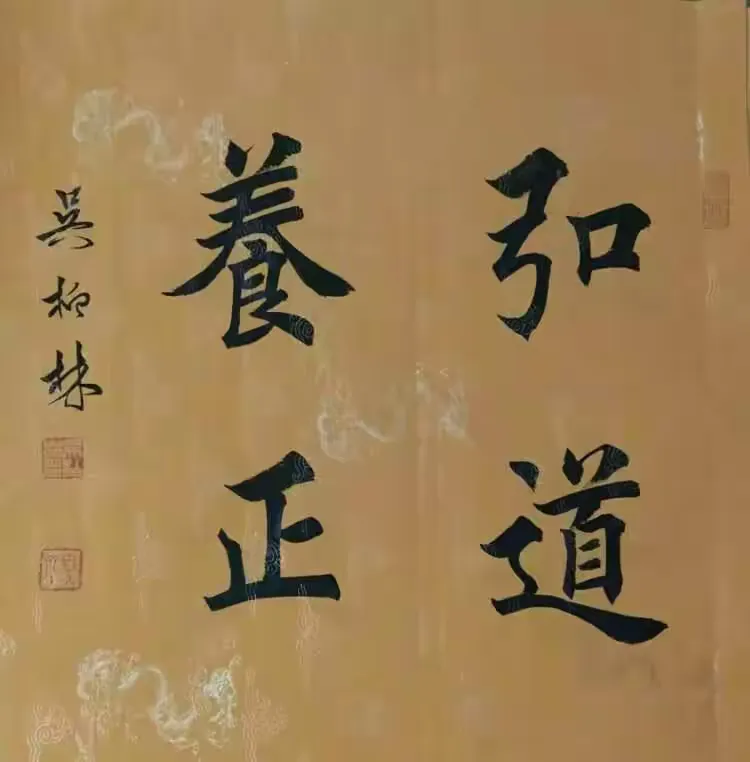 弘道
養正
吳柳林